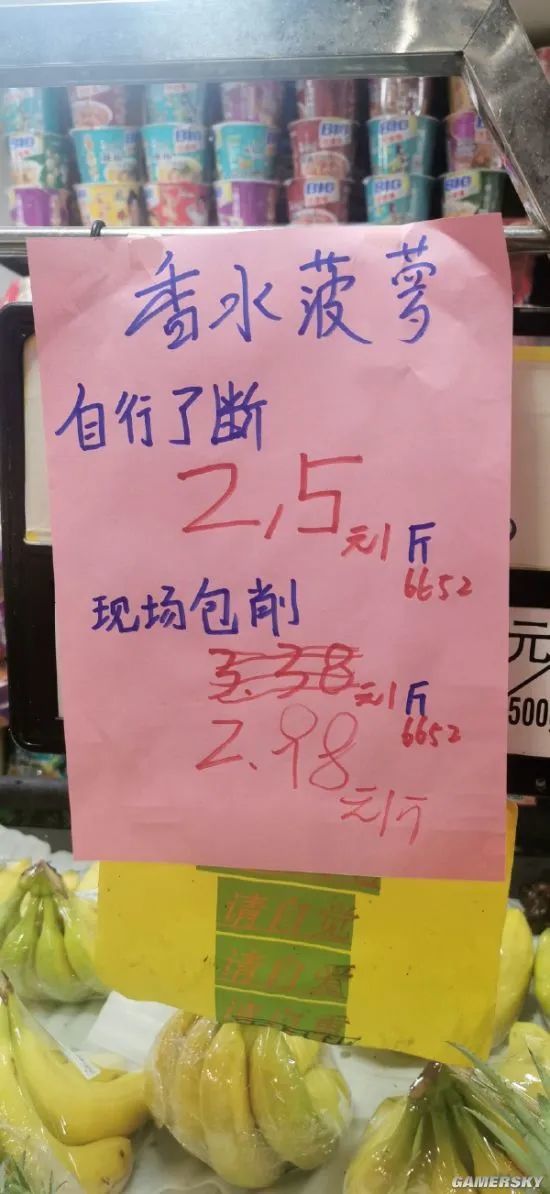 香水菠萝
自行了断
2,5元/斤
6652
现场包削
3.38元/斤
6652
2.98元/斤
元
500
请自觉
请自爱
BIG
GAMERSKY